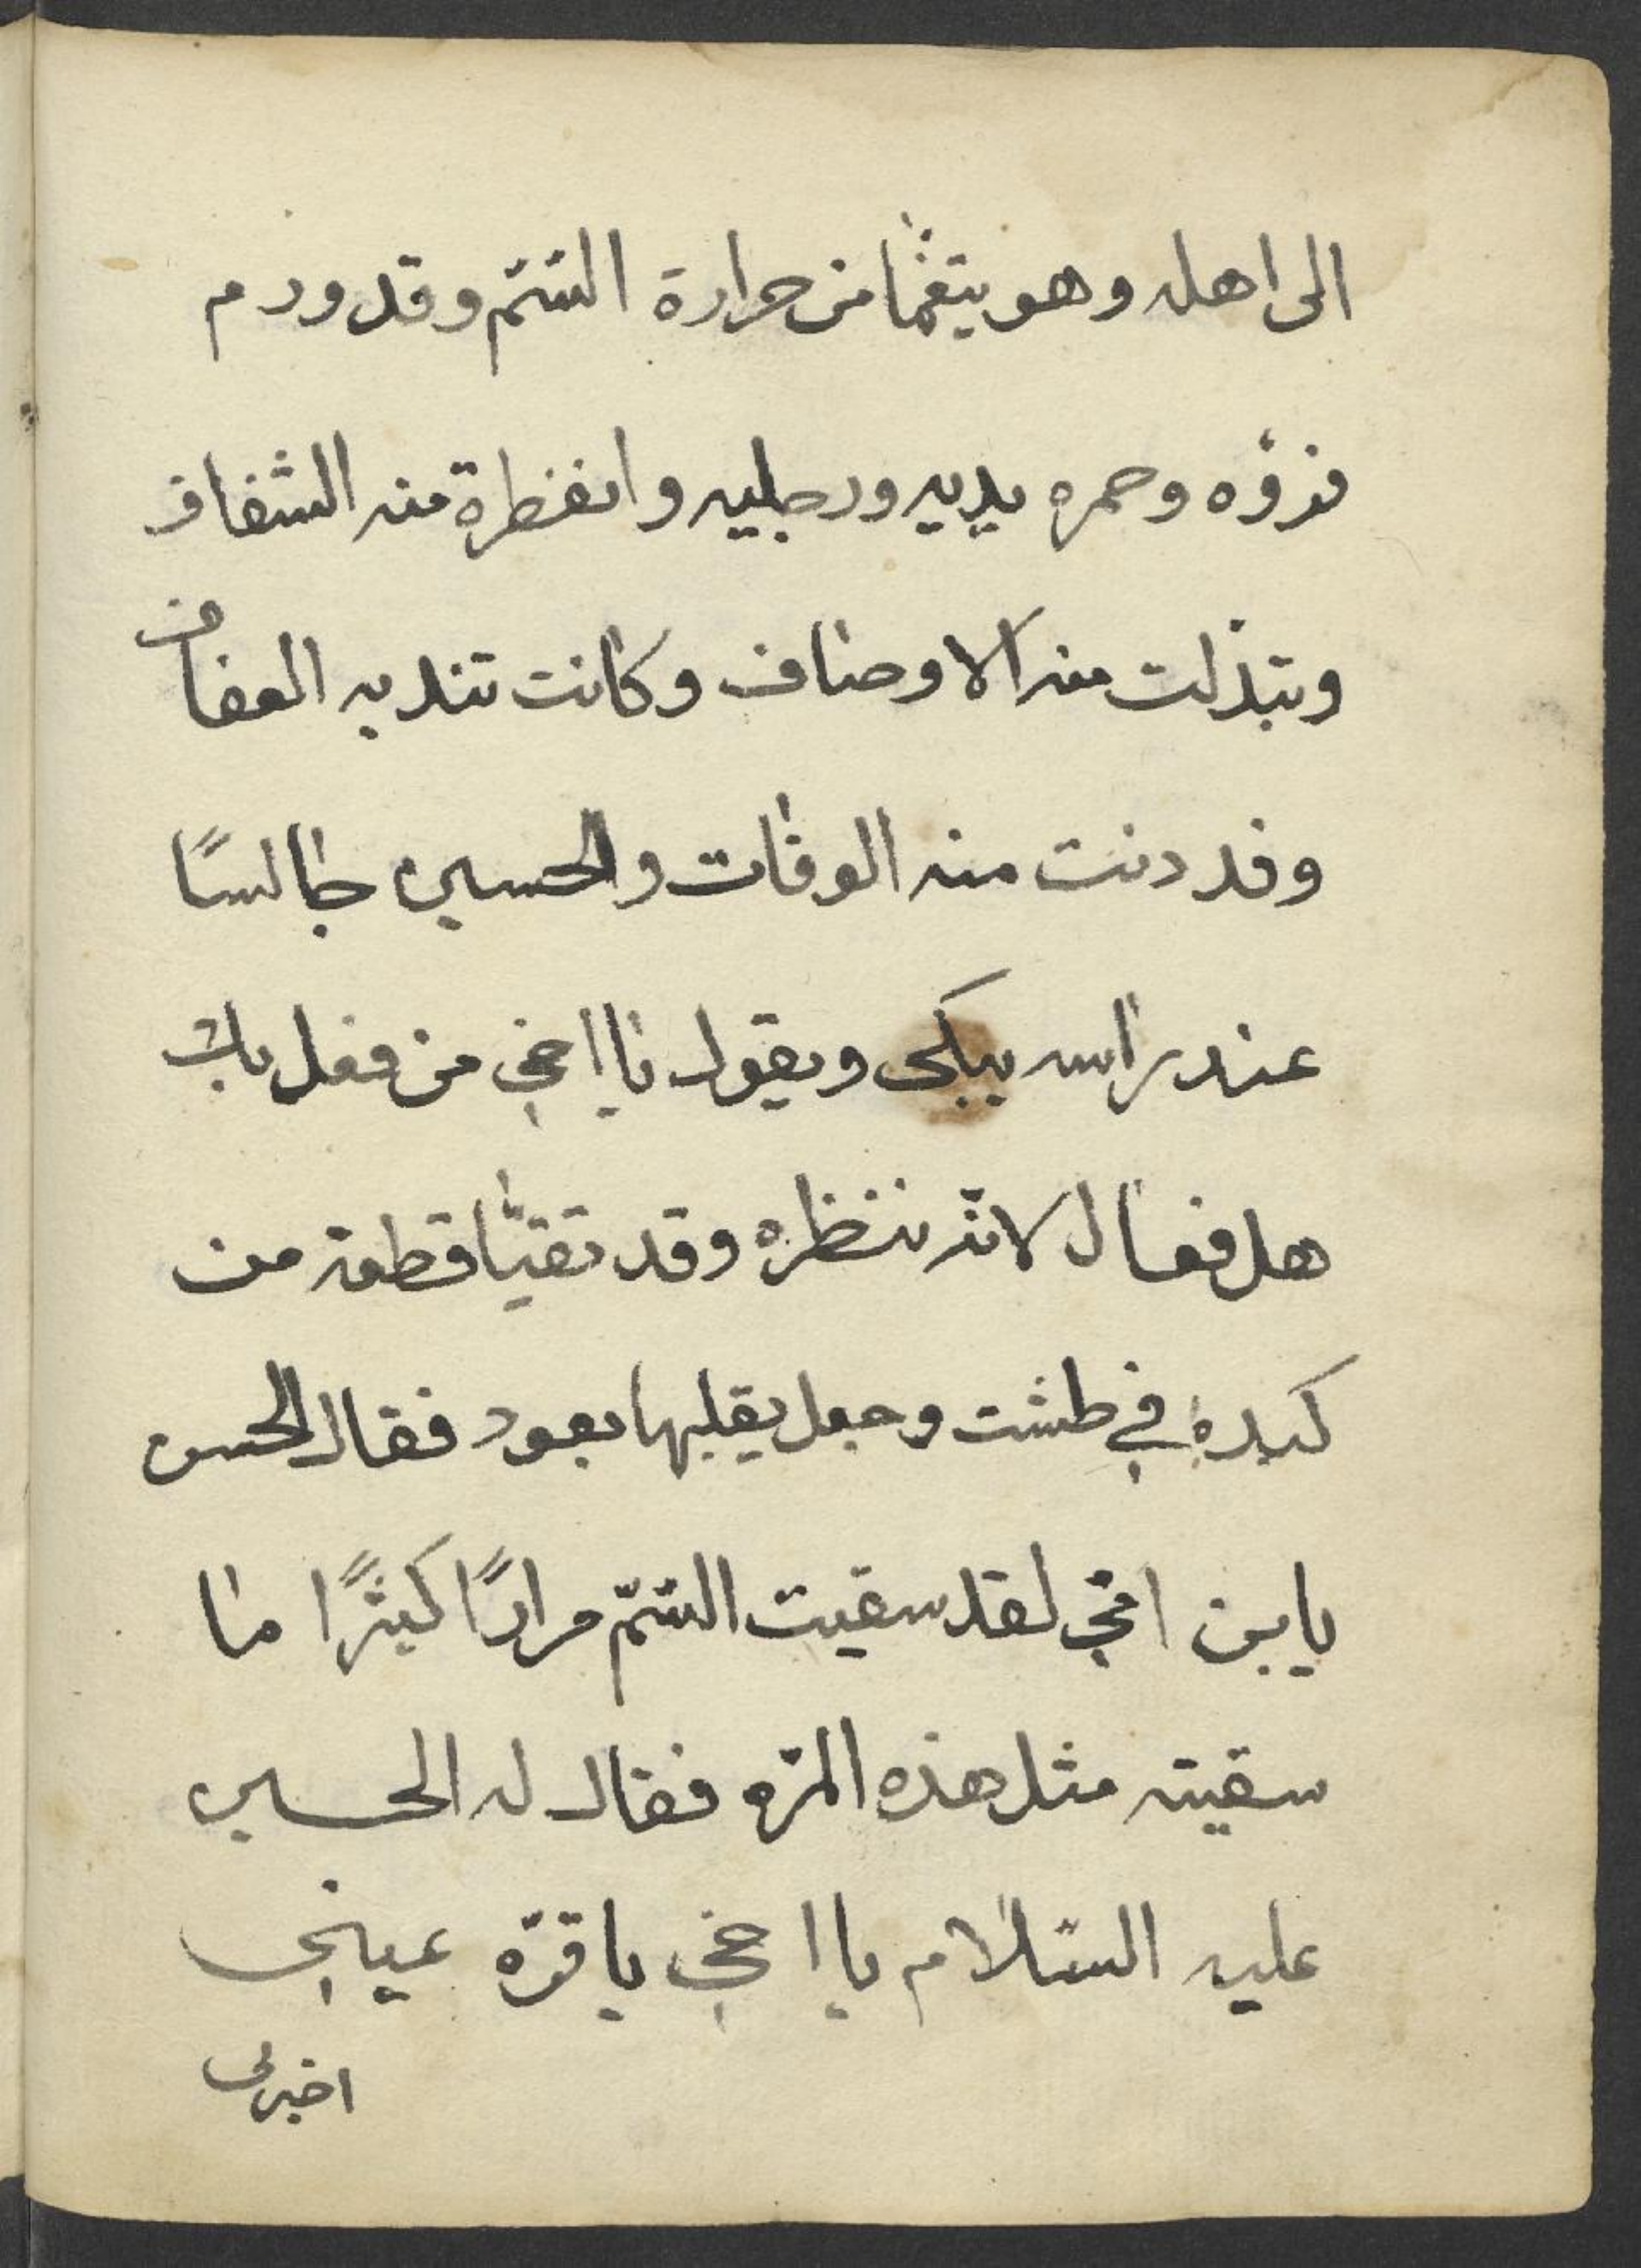 الى اهله وهو يتغمّا من حرارة السّمّ وقد ورم
فزؤه وحمره يديه ورجليه وانفطرة منه الشفاف
وتبدّلت منه الاوصاف وكانت تندبه العفاف
وقد دنت منه الوفات والحسين جالسًا
عند راسه يبكى ويقول يا اخى من فعل بك
هل فعال لانّه ينظره وقد تقيّا قطعة من
كبده في طشت وجعل يقلبها بعود فقال الحسن
يابن امّي لقد سقيت السّمّ مرارًا كثيرًا ما
سقيته مثل هذه المرّه فقال له الحسين
عليه السّلام يا اخي يا قرّه عيني
اخبرنى